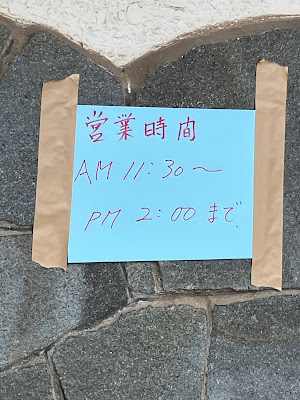 営業時間
AM 11:30〜
PM 2:00まで